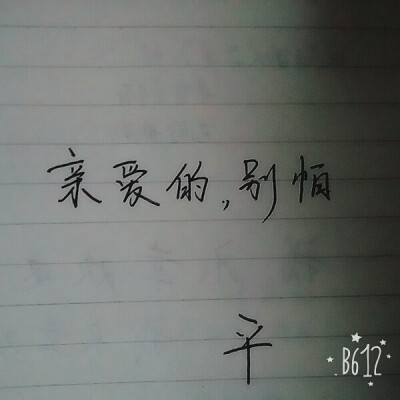 亲爱的,别怕
平
B612